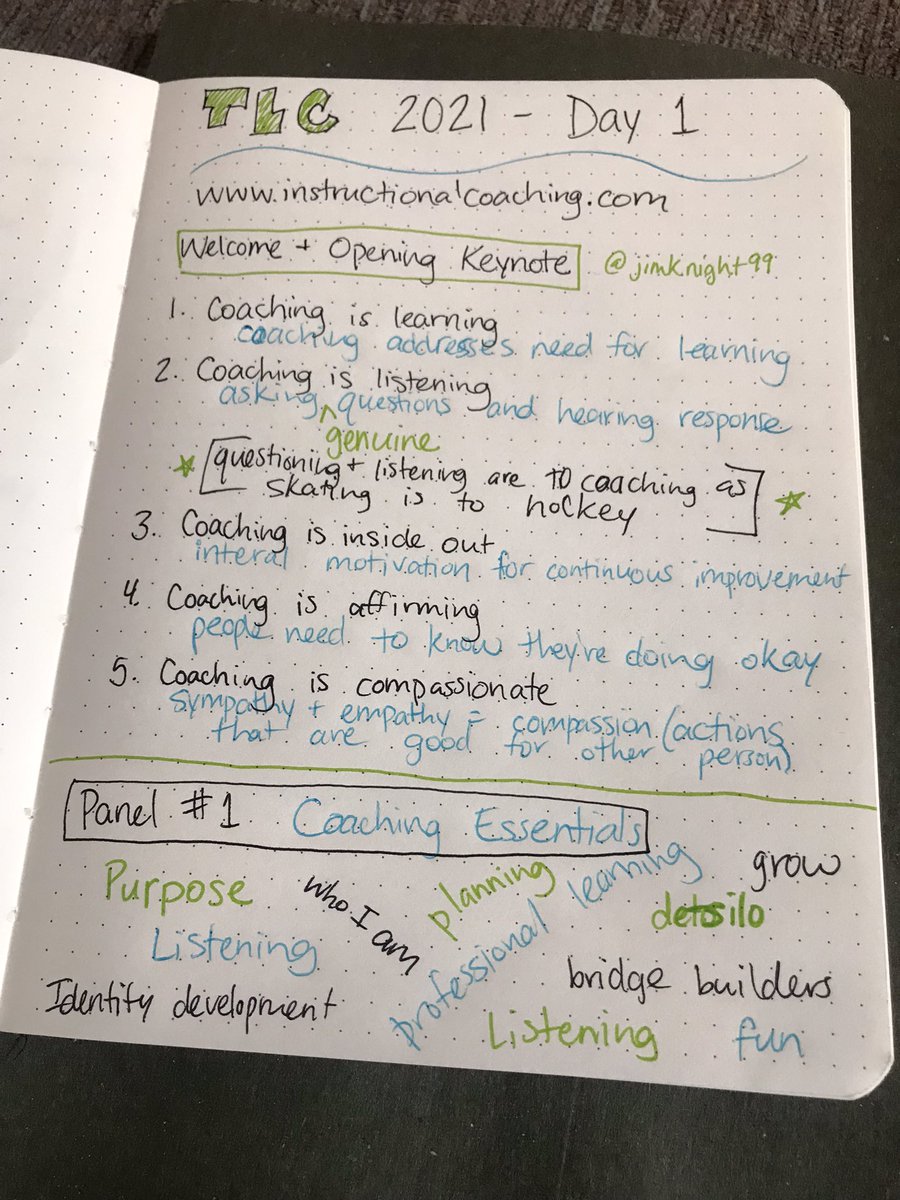 TLC 2021 - Day 1
www.instructionalcoaching.com
Welcome + Opening Keynote @jimknight99
1. Coaching is learning
coaching addresses need for learning
2. Coaching is listening
asking ^ questions and hearing response
genuine
questioning + listening are to coaching as
skating is to hockey
3. Coaching is inside out
interal motivation for continuous improvement
4. Coaching is affirming
people need to know they're doing okay
5. Coaching is compassionate
sympathy + empathy = compassion (actions
that are good for other person)
Panel #1 Coaching Essentials
Purpose
who I am
planning
professional learning
grow
Listening
bridge builders
Identity development
Listening
fun